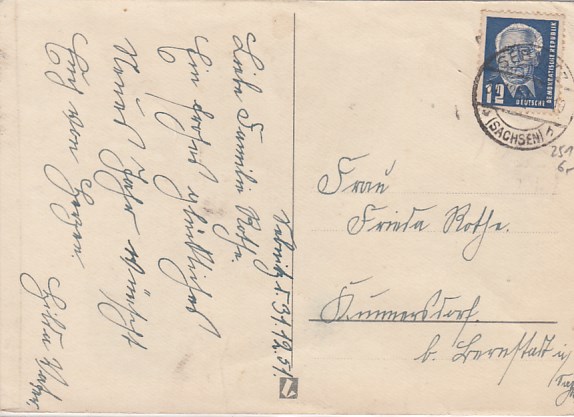 Liebe Familie Rothe.
Ein frohes glückliches
Neues Jahr wünscht
Euch von Herzen
31.12.51
12
DEUTSCHE
DEMOKRATISCHE REPUBLIK
(SACHSEN)
Frau
Frieda Rothe.
Kunnersdorf.
b. Bernstadt